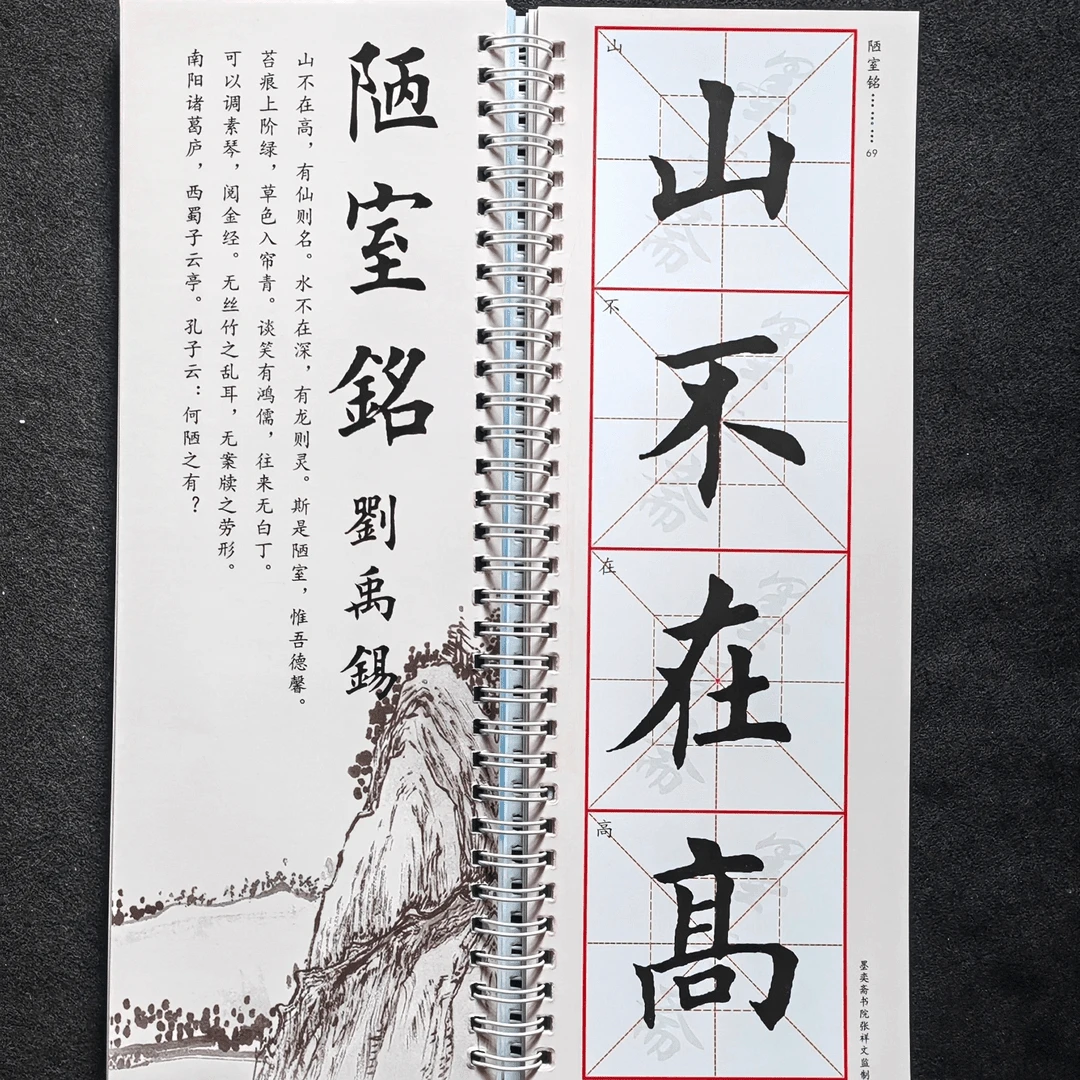 陋室銘
劉禹錫
山不在高，有仙则名。水不在深，有龙则灵。斯是陋室，惟吾德馨。
苔痕上阶绿，草色入帘青。谈笑有鸿儒，往来无白丁。
可以调素琴，阅金经。无丝竹之乱耳，无案牍之劳形。
南阳诸葛庐，西蜀子云亭。孔子云：何陋之有？
陋室铭………69
山
山
不
不
在
在
高
高
墨奕斋书院张祥文监制